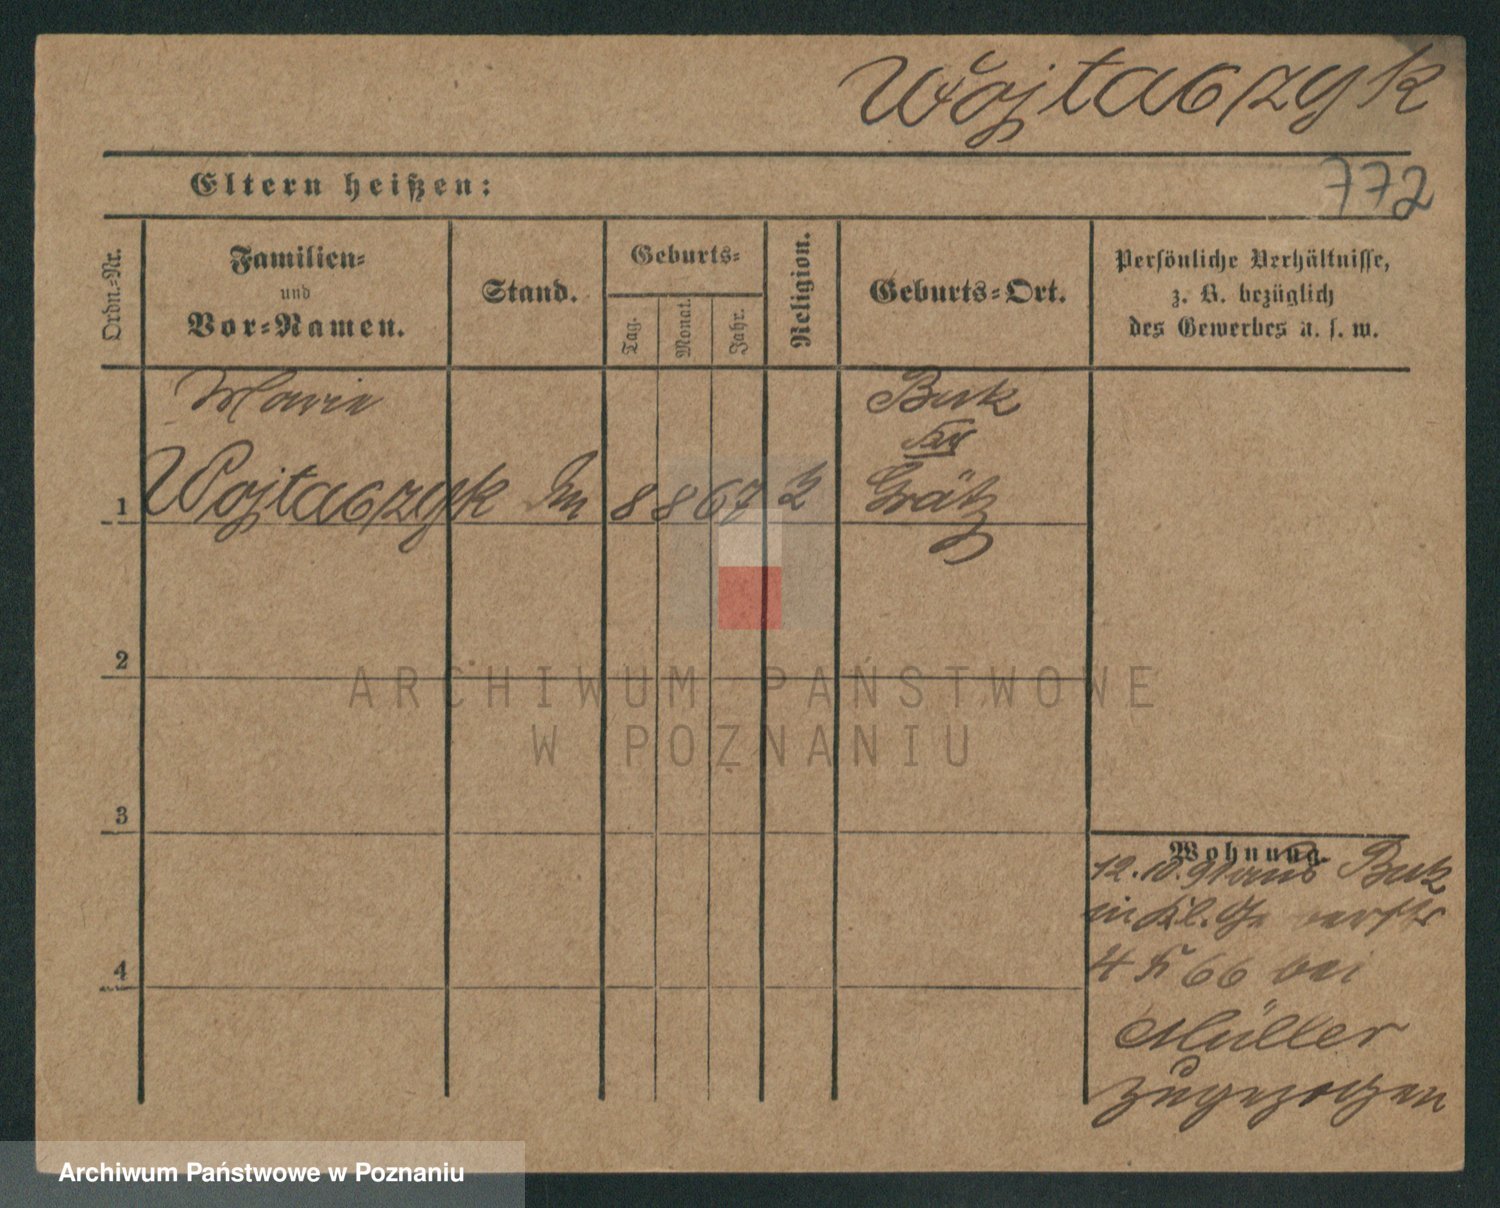 Wojtaczyk
Eltern heißen:
772
Ordn.-Nr.
Familien-
und
Vor-Namen.
Stand.
Geburts-
Tag.
Monat.
Jahr.
Religion.
Geburts-Ort.
Persönliche Verhältnisse,
z. B. bezüglich
des Gewerbes u. s. w.
Marie
Buk
1 Wojtaczyk 8 8 67
Grätz
2
ARCHIWUM PAŃSTWOWE
W POZNANIU
3
Wohnung.
12.10.91 aus Buk
in Kl.
4
4 66 bei
Müller
zugezogen
Archiwum Państwowe w Poznaniu